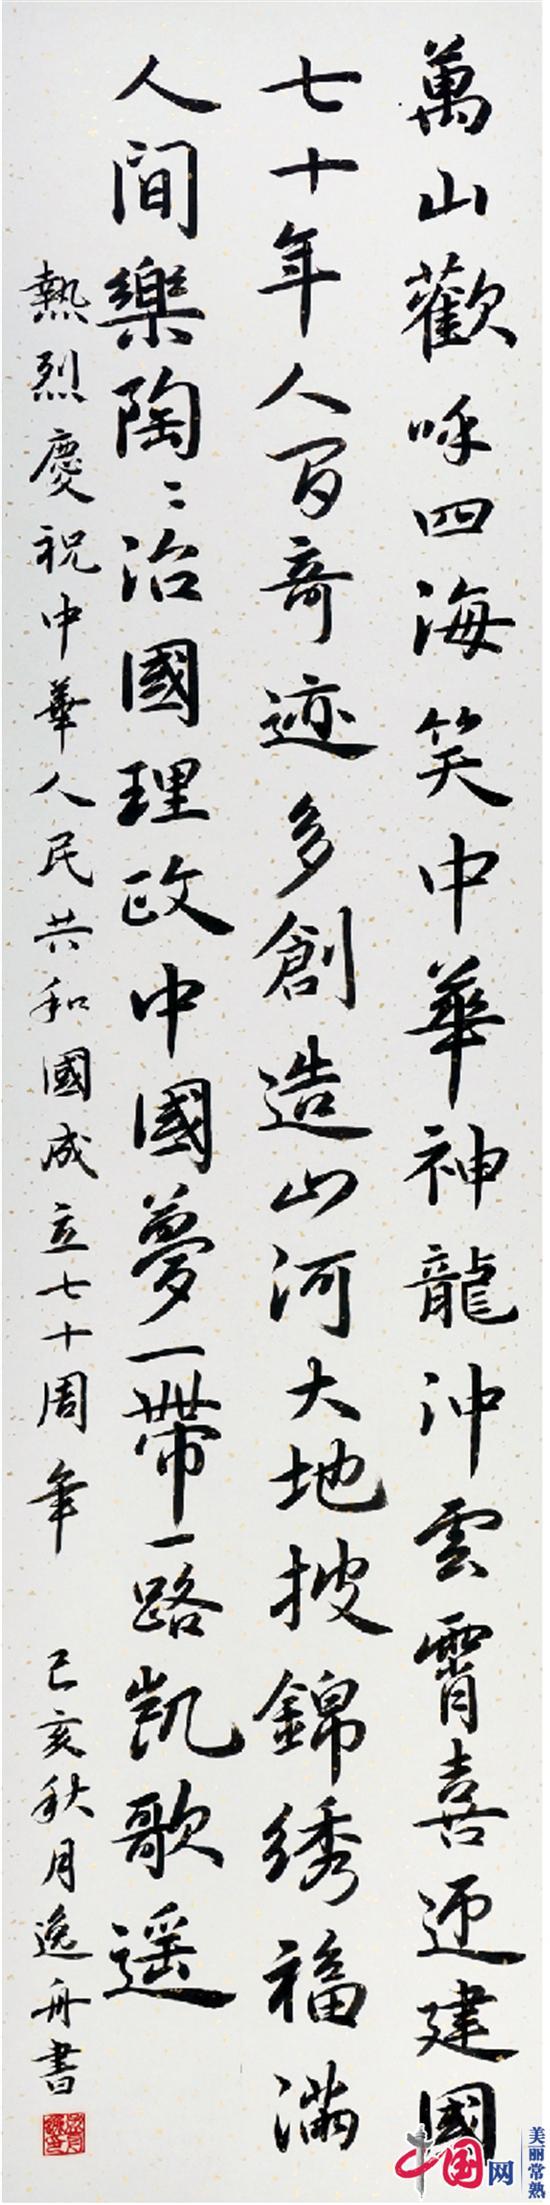 萬山歡呼四海笑中華神龍沖雲霄喜迎建國
七十年人百奇迹多創造山河大地披錦绣福滿
人間樂陶〻治國理政中國夢一帶一路凱歌遥
熱烈慶祝中華人民共和國成立七十周年 己亥秋月逸舟書
中国网
美丽常熟